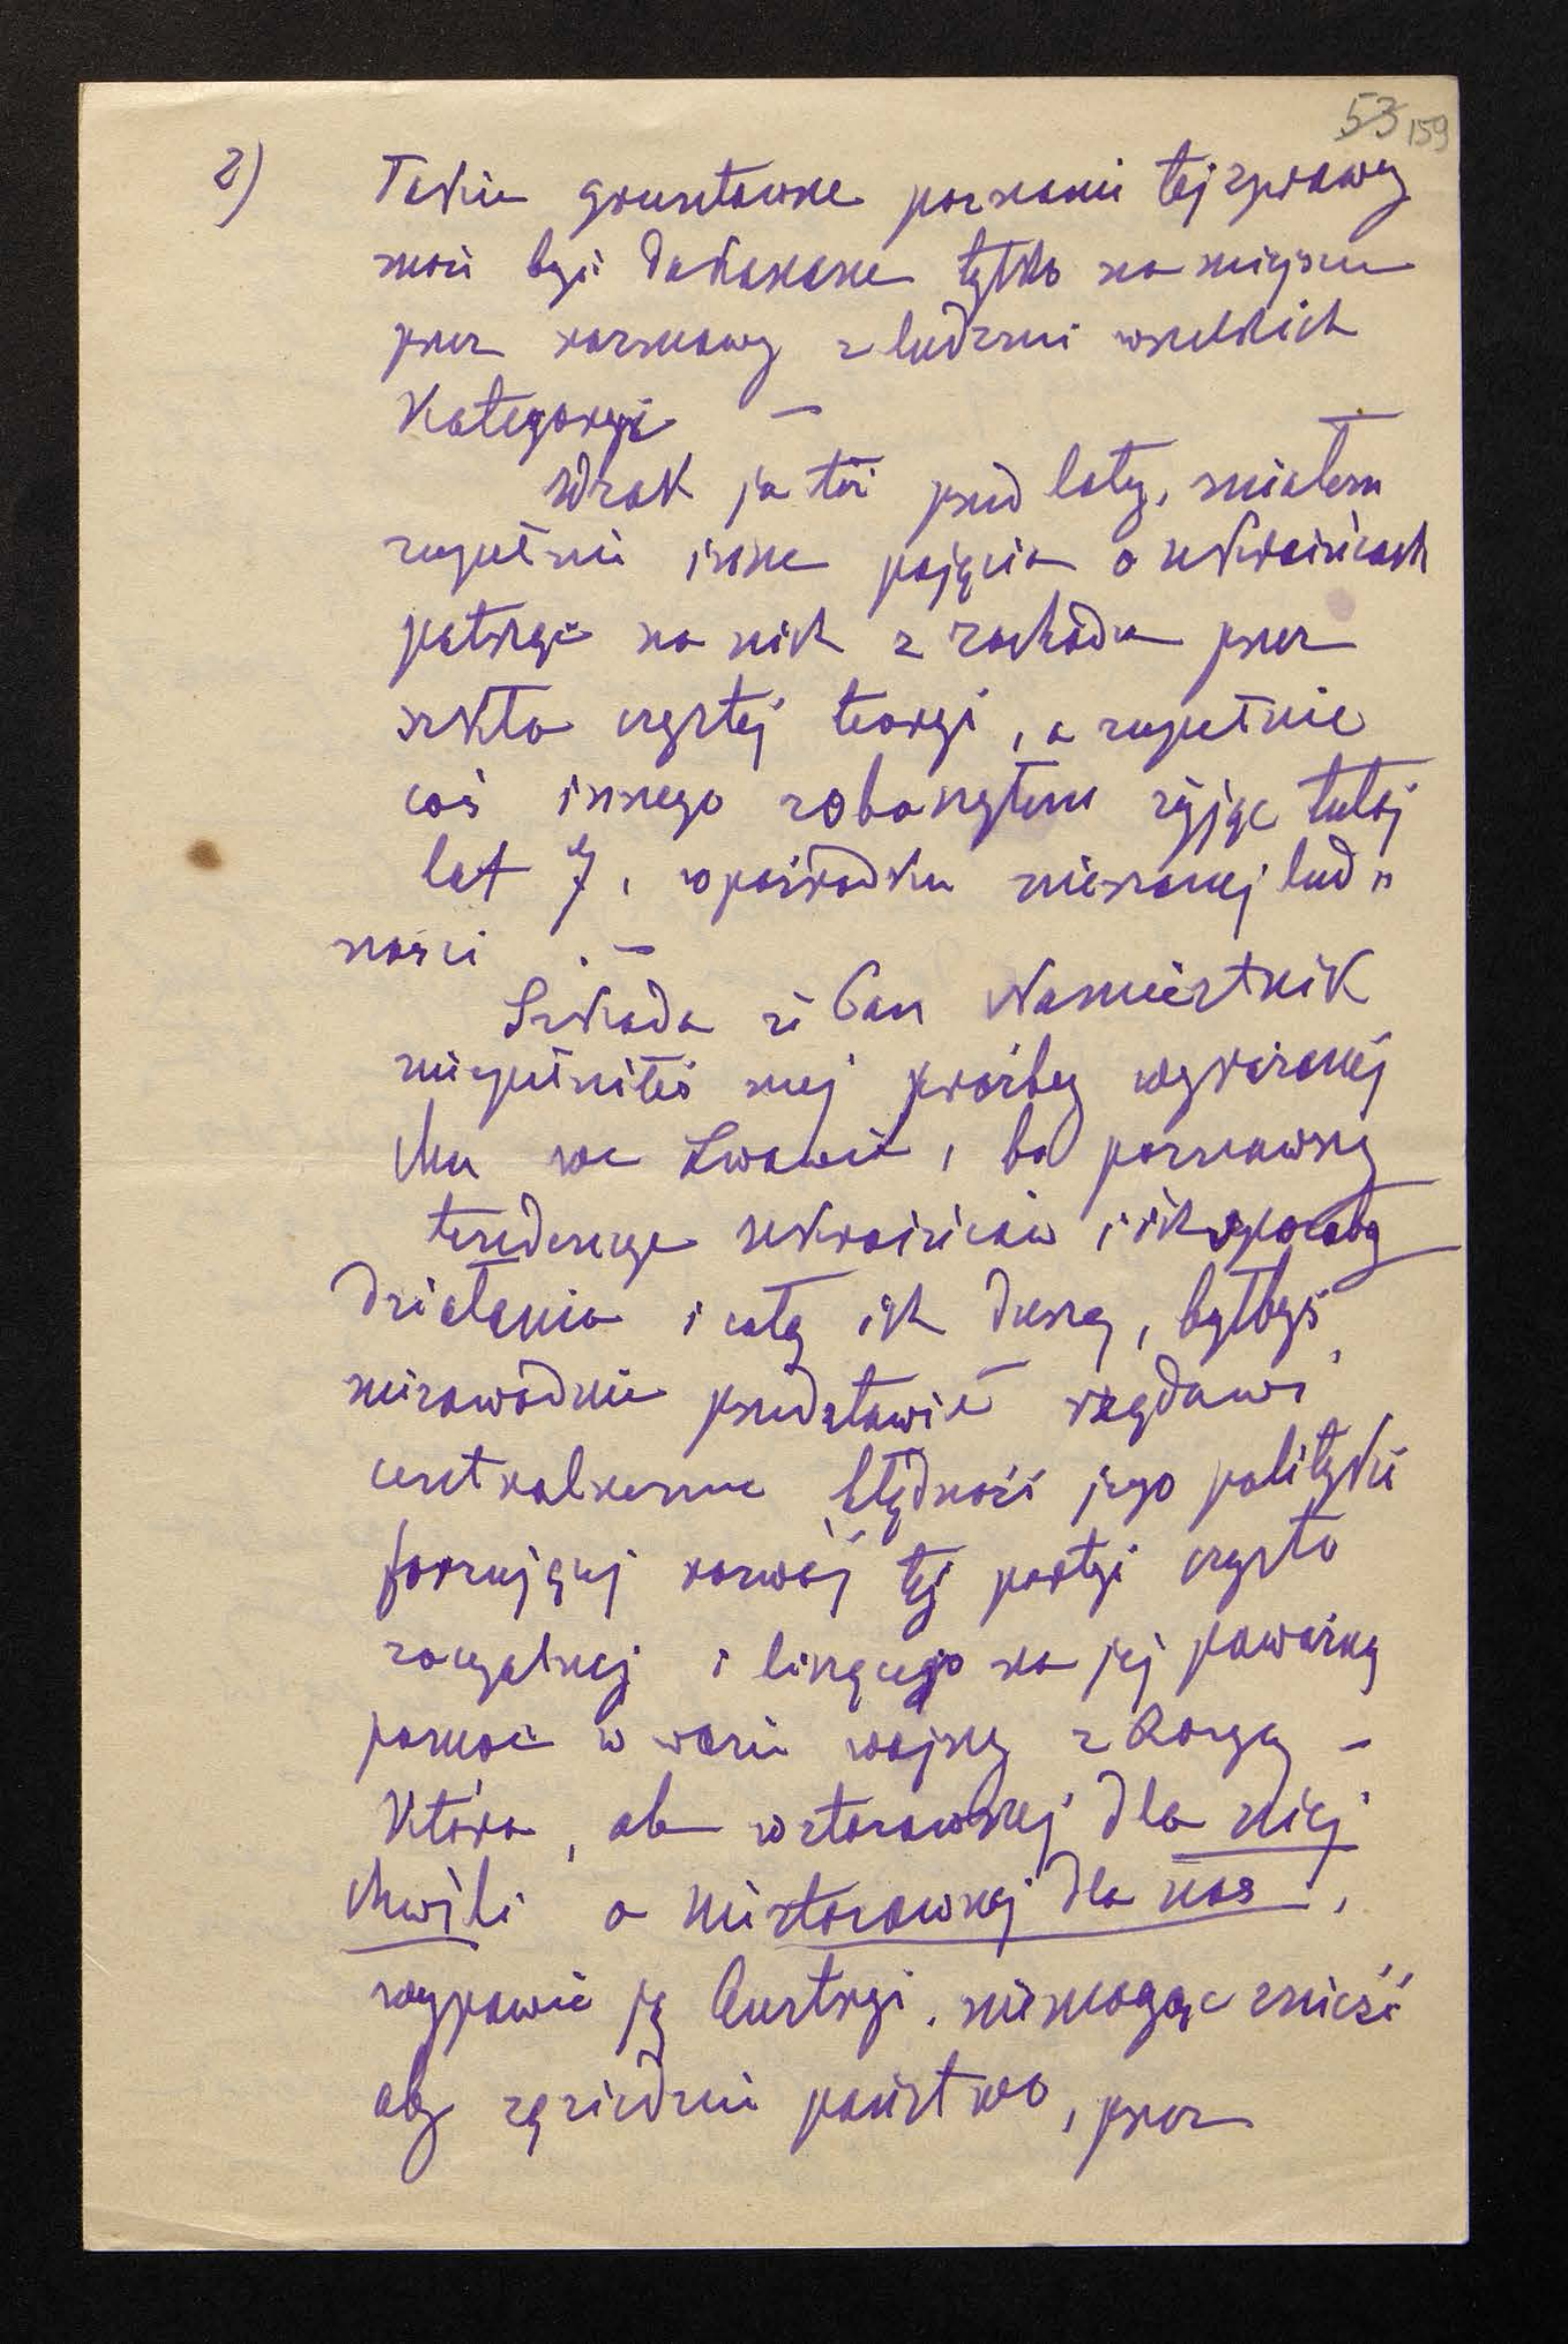 53 159
2) Takie gruntowne poznanie tej sprawy
może być dokonane tylko na miejscu
przez rozmowy z ludźmi wszelkich
Kategoryi —
Wszak ja też przed laty, miałem
zupełnie inne pojęcia o ukraińcach
patrząc na nich z zachodu przez
szkła czystej teoryi, a zupełnie
coś innego zobaczyłem żyjąc tutaj
lat 7, w pośrodku mieszanej lud„
ności . —
Szkoda że Pan Namiestnik
niespełniłeś mej prośby wyrażonej
Mu we Lwowie, bo poznawszy
tendencye ukraińców i ich sposoby
działania i całą ich duszę, byłbyś
niezawodnie przedstawił rządowi
centralnemu błędność jego polityki
forsującej rozwój tej partyi czysto
socyalnej i liczącego na jej poważną
pomoc w razie wojny z Rosyą —
Która, ale w stosownej dla niej
chwili a niestosownej dla nas,
wypowie ją Austryi, niemogąc znieść
aby sąsiednie państwo, przez